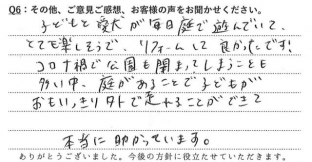 Q6：その他、ご意見ご感想、お客様の声をお聞かせください。
子どもと愛犬が毎日庭で遊んでいて、
とても楽しそうで、リフォームして良かったです！
コロナ禍で公園も閉まってしまうことも
多い中、庭があることで子どもが
おもいっきり外で走ることができて
本当に助かっています。
ありがとうございました。今後の方針に役立たせていただきます。